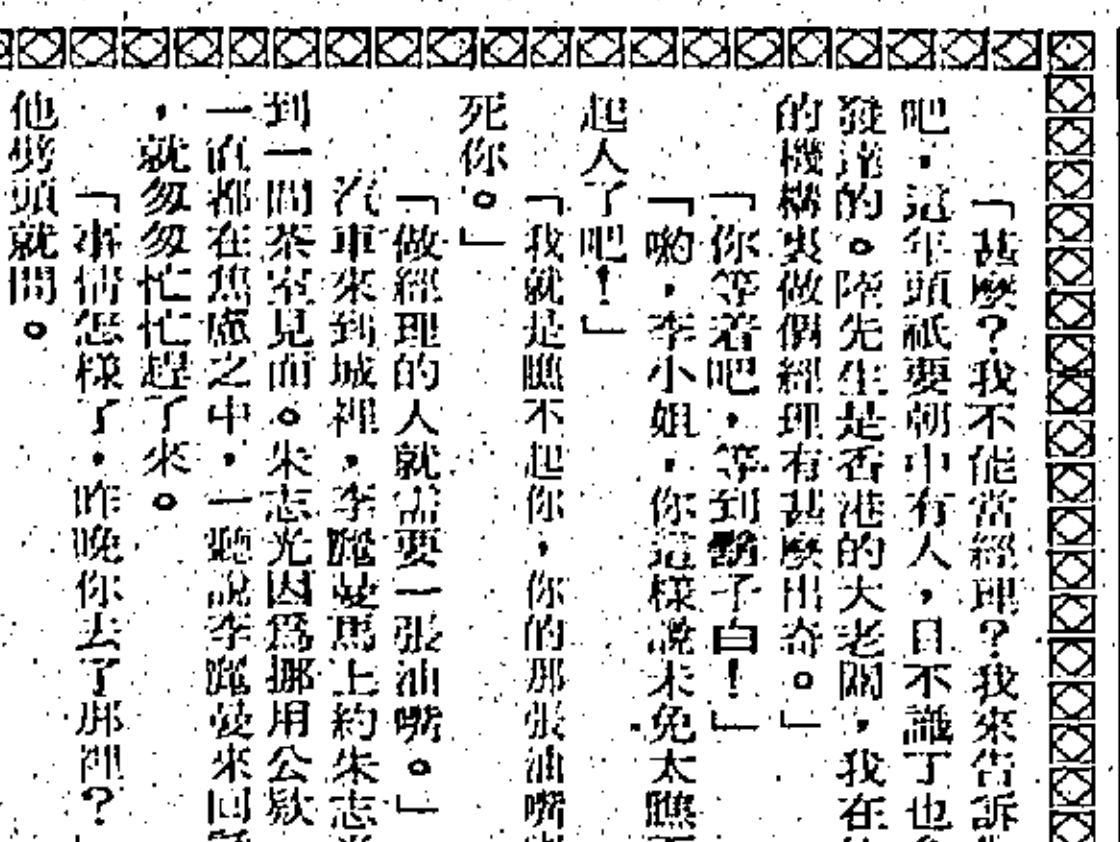 「甚麼?我不能當經理?我來告訴
吧,這年頭祇要朝中有人,目不識丁也
發達的。陸先生是香港的大老闆,我在
的機構裏做個經理有甚麼出奇。」
「你等着吧,等到鬍子白!」
「喲,李小姐,你這樣說未免太瞧
起人了吧!」
「我就是瞧不起你,你的那張油嘴
死你。」
「做經理的人就需要一張油嘴。」
汽車來到城裡,李麗蔓馬上約朱志
到一間茶室見面。朱志光因爲挪用公欵
一直都在焦慮之中,一聽說李麗蔓來回
,就匆匆忙忙趕了來。
「事情怎樣了,昨晚你去了那裡?
他劈頭就問。